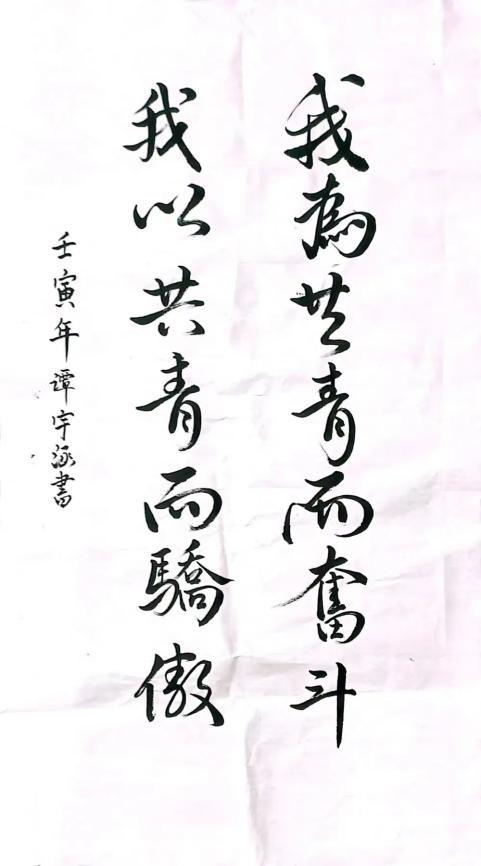 我為共青而奮斗
我以共青而驕傲
壬寅年谭宇涵書